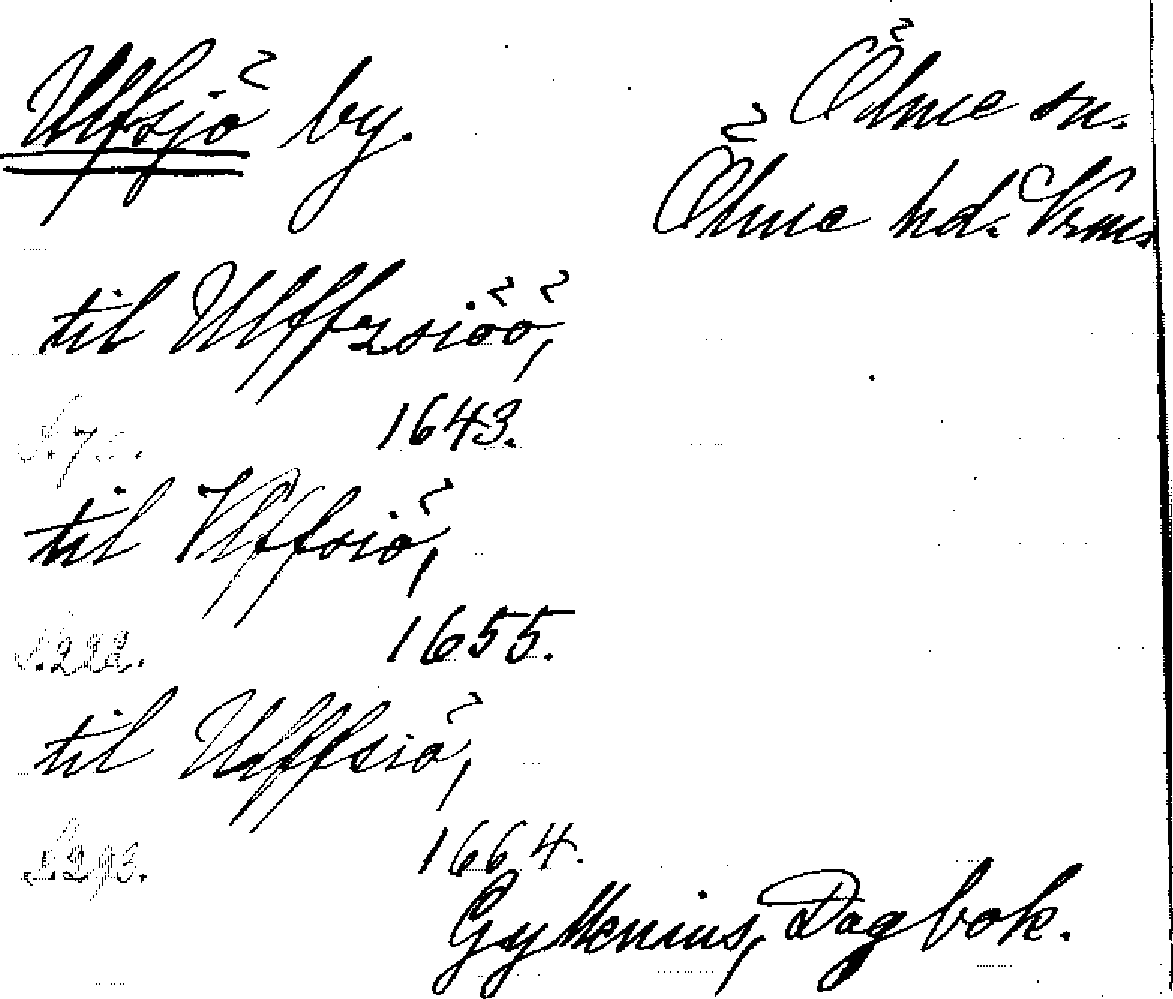 Ulfsjö by.
Ölme sn.
Ölme hd. Vrml.
til Ulffzsiöö,
1643.
til Vlffsiö,
S.222. 1655.
til Ulffsiö,
S.293. 1664.
Gyllenius, Dagbok.